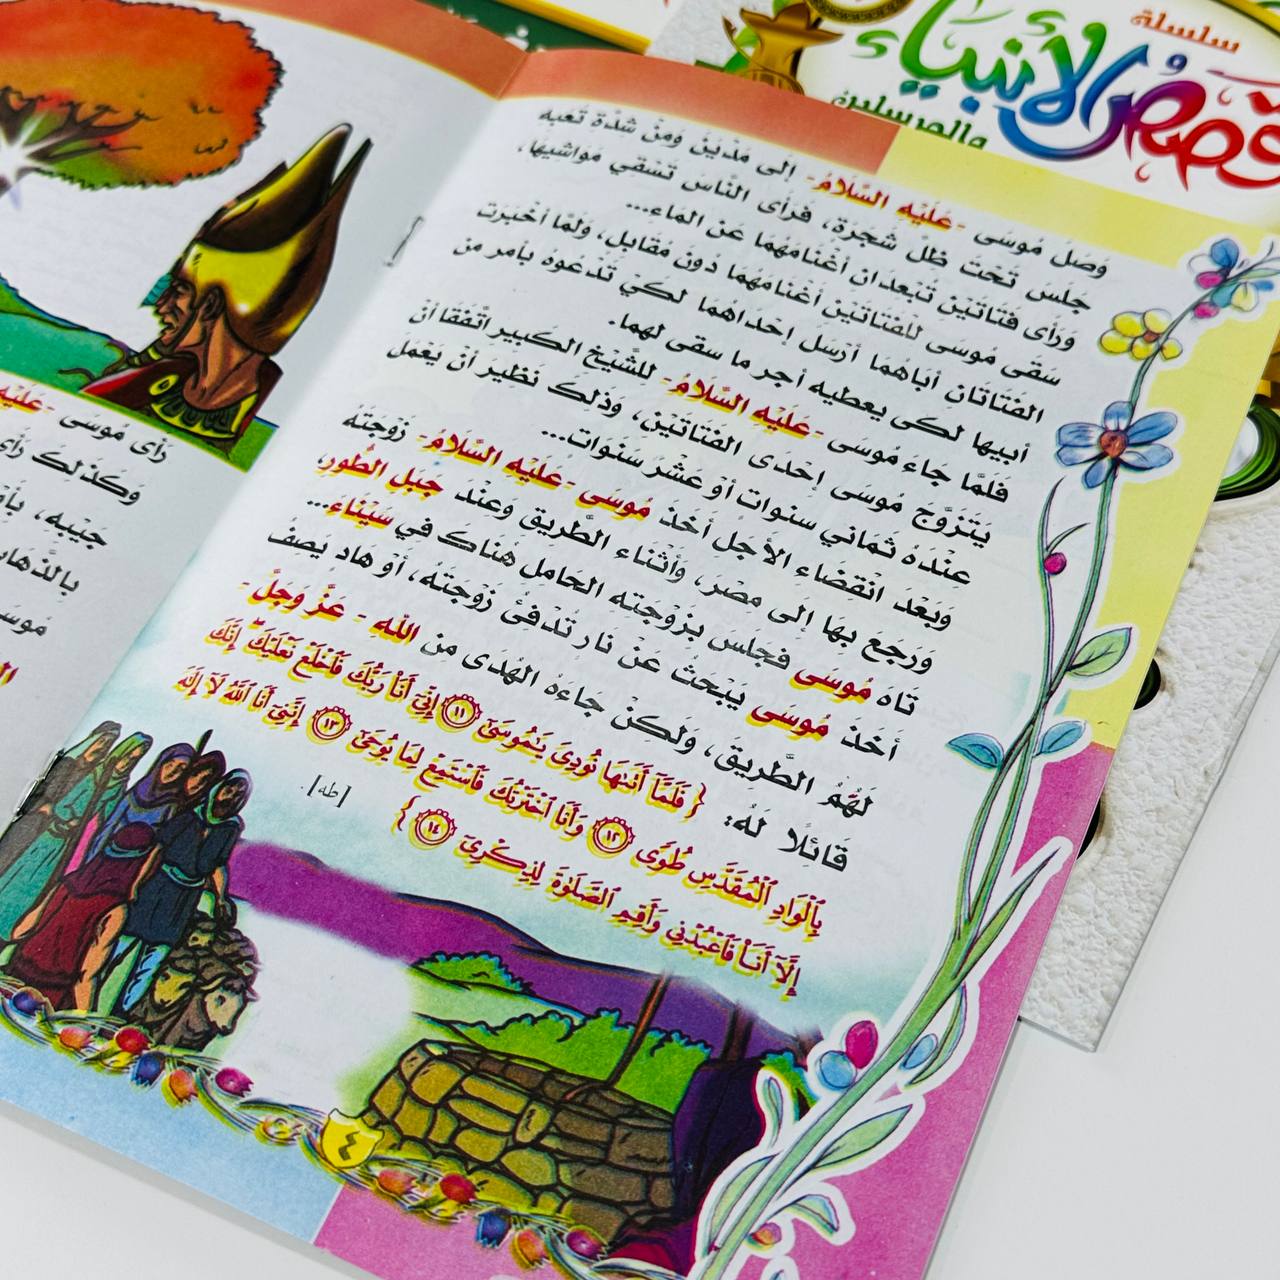 سلسلة
قصص الأنبياء
والمرسلين
وَصَلَ مُوسَى -عَلَيْهِ السَّلَامُ- إِلَى مَدْيَنَ وَمِنْ شِدَّةِ تَعَبِهِ
جَلَسَ تَحْتَ ظِلِّ شَجَرَةٍ، فَرَأَى النَّاسَ تَسْقِي مَوَاشِيهَا،
وَرَأَى فَتَاتَيْنِ تُبْعِدَانِ أَغْنَامَهُمَا عَنِ المَاءِ...
سَقَى مُوسَى لِلْفَتَاتَيْنِ أَغْنَامَهُمَا دُونَ مُقَابِلٍ، وَلَمَّا أَخْبَرَتْ
الفَتَاتَانِ أَبَاهُمَا أَرْسَلَ إِحْدَاهُمَا لِكَيْ تَدْعُوَهُ بِأَمْرٍ مِنْ
أَبِيهَا لِكَي يُعْطِيهِ أَجْرَ مَا سَقَى لَهُمَا.
فَلَمَّا جَاءَ مُوسَى -عَلَيْهِ السَّلَامُ- لِلشَّيْخِ الكَبِيرِ اتَّفَقَا أَنْ
يَتَزَوَّجَ مُوسَى إِحْدَى الفَتَاتَيْنِ، وَذَلِكَ نَظِيرَ أَنْ يَعْمَلَ
عِنْدَهُ ثَمَانِي سَنَوَاتٍ أَوْ عَشْرَ سَنَوَاتٍ...
وَبَعْدَ انْقِضَاءِ الأَجَلِ أَخَذَ مُوسَى -عَلَيْهِ السَّلَامُ- زَوْجَتَهُ
وَرَجَعَ بِهَا إِلَى مِصْرَ، وَأَثْنَاءَ الطَّرِيقِ وَعِنْدَ جَبَلِ الطُّورِ،
تَاهَ مُوسَى فَجَلَسَ بِزَوْجَتِهِ الحَامِلِ هُنَاكَ فِي سَيْنَاءَ...
أَخَذَ مُوسَى يَبْحَثُ عَنْ نَارٍ تُدْفِئُ زَوْجَتَهُ، أَوْ هَادٍ يَصِفُ
لَهُمُ الطَّرِيقَ، وَلَكِنْ جَاءَهُ الهُدَى مِنَ اللهِ - عَزَّ وَجَلَّ -
قَائِلًا لَهُ: {فَلَمَّآ أَتَىٰهَا نُودِىَ يَـٰمُوسَىٰٓ ١١ إِنِّىٓ أَنَا۠ رَبُّكَ فَٱخْلَعْ نَعْلَيْكَ إِنَّكَ
بِٱلْوَادِ ٱلْمُقَدَّسِ طُوًى ١٢ وَأَنَا ٱخْتَرْتُكَ فَٱسْتَمِعْ لِمَا يُوحَىٰٓ ١٣ إِنَّنِىٓ أَنَا ٱللَّهُ لَآ إِلَـٰهَ
إِلَّآ أَنَا۠ فَٱعْبُدْنِى وَأَقِمِ ٱلصَّلَوٰةَ لِذِكْرِىٓ ١٤} [طه].
٤
رَأَى مُوسَى -عَلَيْهِ
وَكَذَلِكَ رَأَى
جَيْبِهِ،